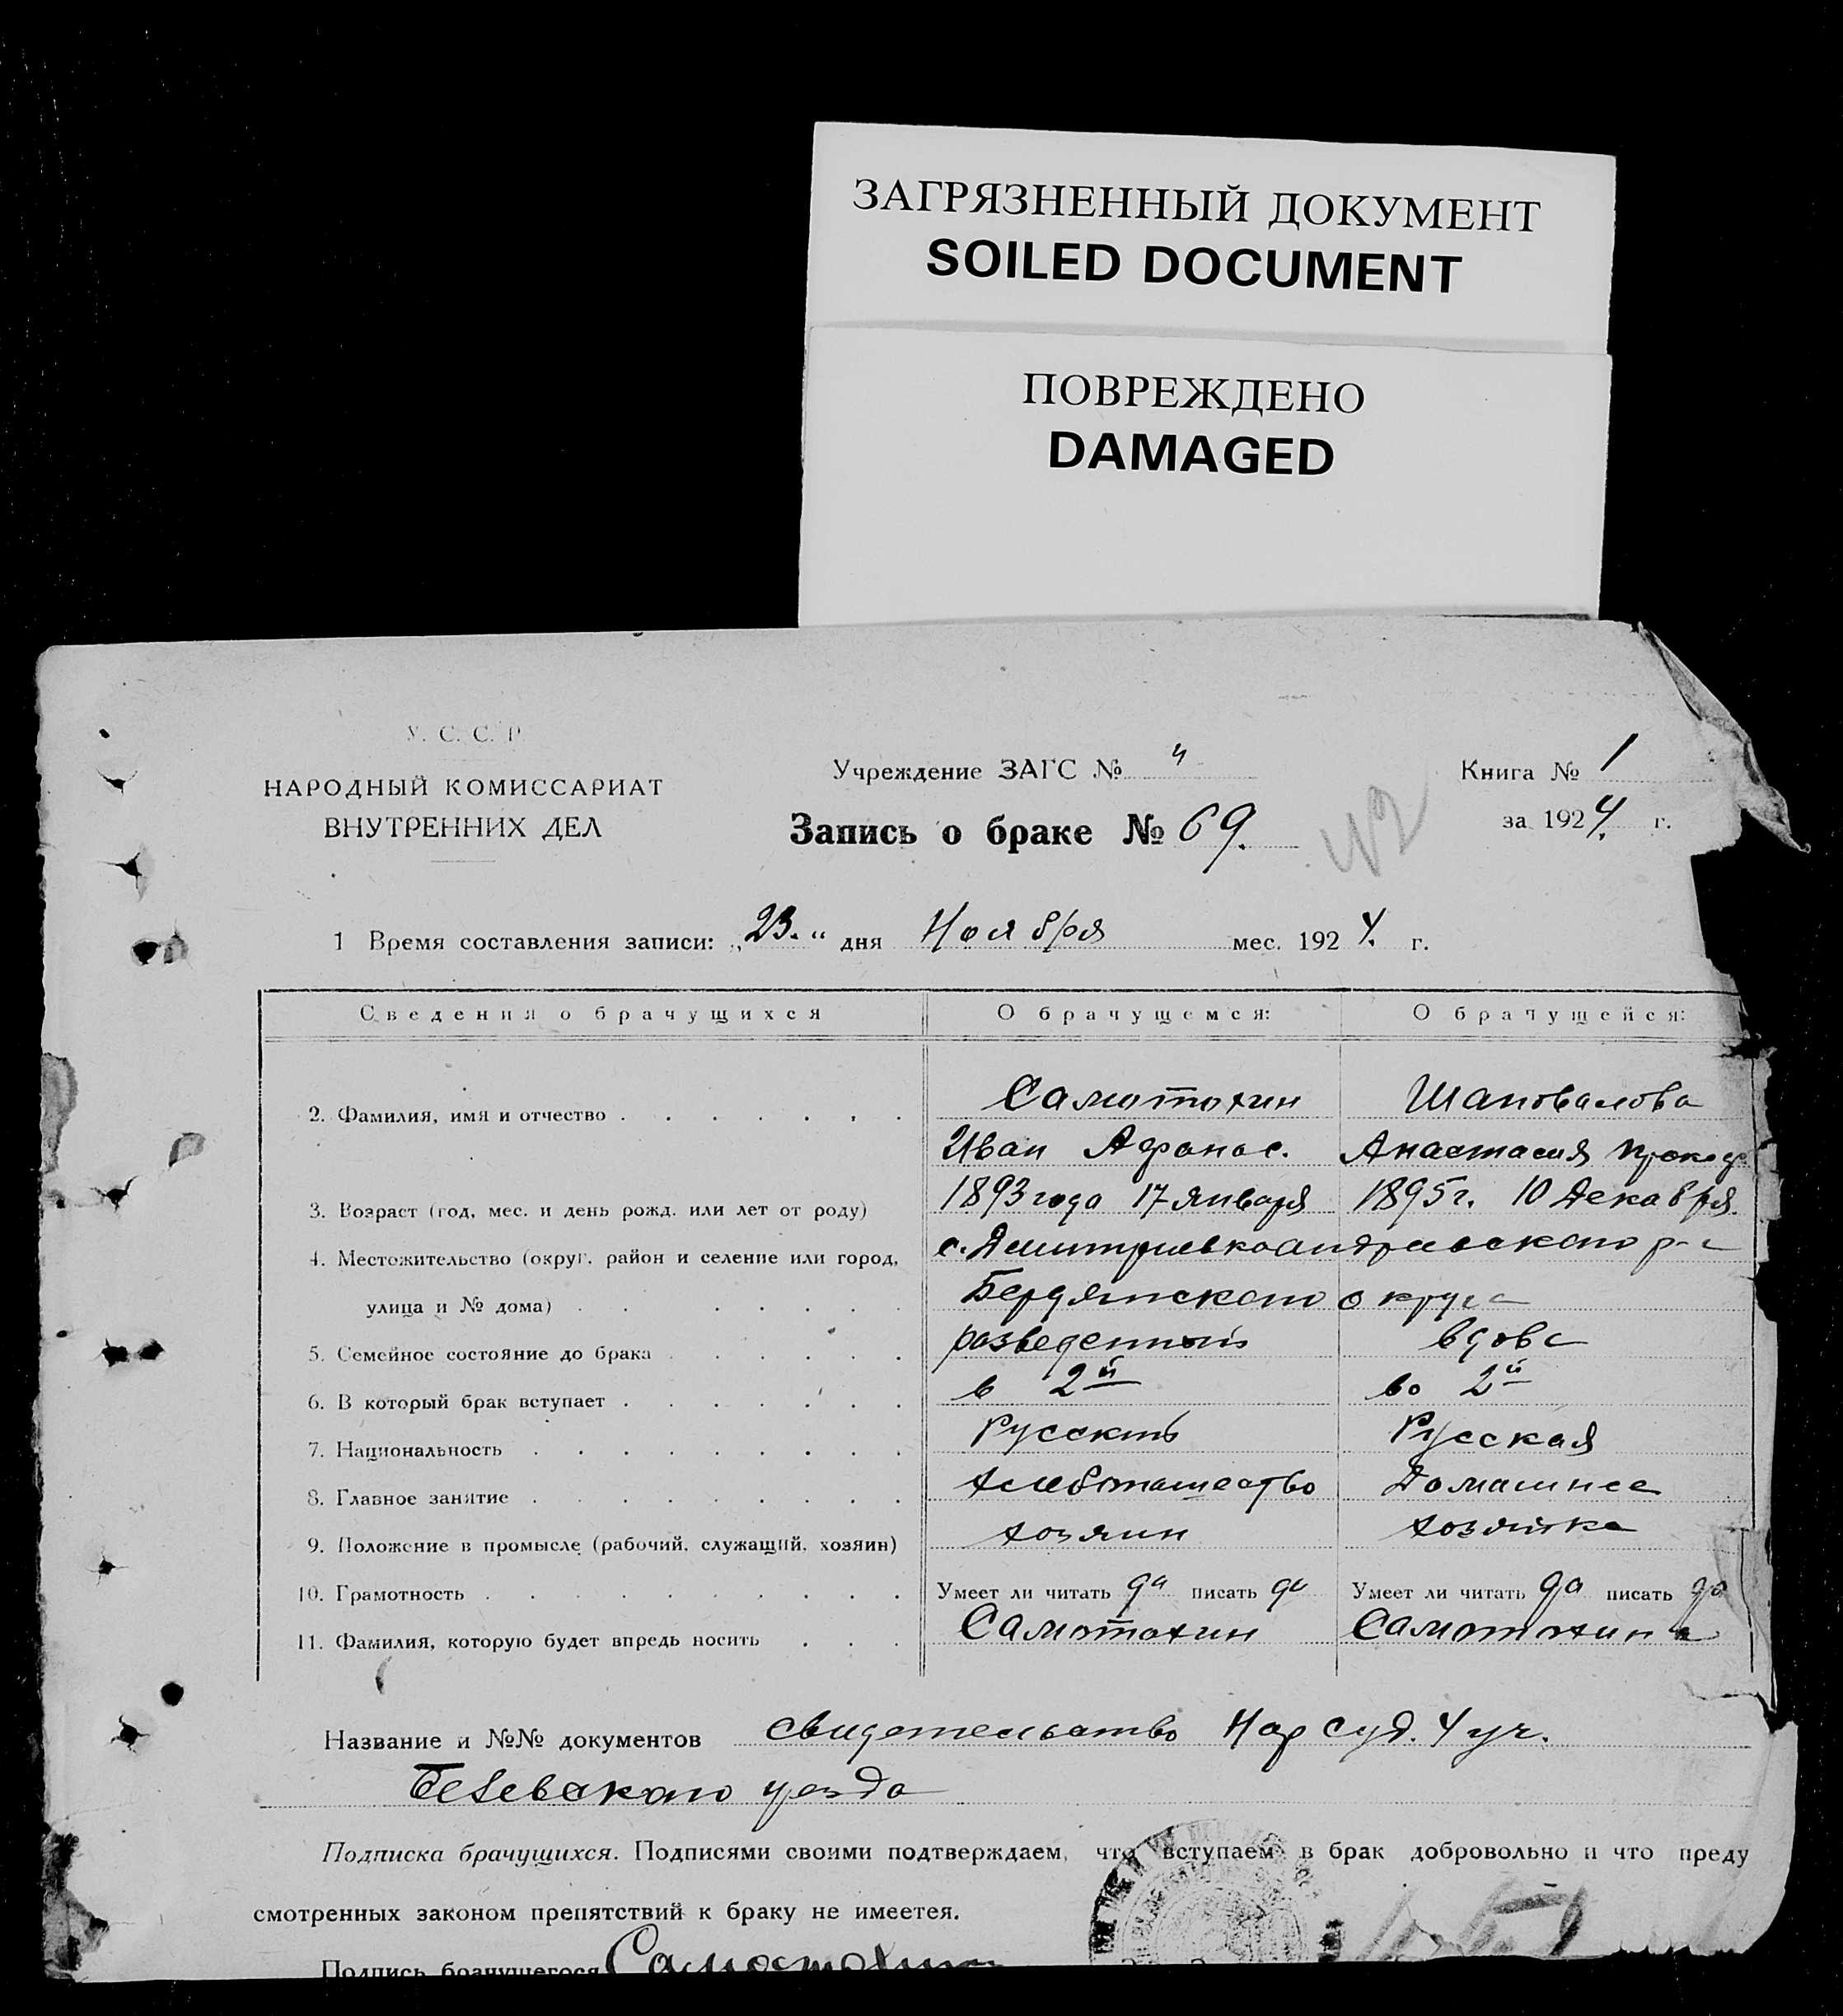 ЗАГРЯЗНЕННЫЙ ДОКУМЕНТ
SOILED DOCUMENT
ПОВРЕЖДЕНО
DAMAGED
У. С. С. Р.
НАРОДНЫЙ КОМИССАРИАТ
ВНУТРЕННИХ ДЕЛ
Учреждение ЗАГС № 4
Запись о браке № 69.
Книга № 1
за 1924. г.
1 Время составления записи: „23.“ дня Ноября мес. 1924. г.
Сведения о брачущихся О брачущемся: О брачущейся:
2. Фамилия, имя и отчество Самотохин Шаповалова
Иван Афанас. Анастасия Прокоф
3. Возраст (год, мес. и день рожд. или лет от роду) 1893 года 17 января 1895 г. 10 Декабря.
4. Местожительство (округ, район и селение или город, с. Дмитриевко андреевского р-
улица и № дома) Бердянского округа
5. Семейное состояние до брака разведенный вдова
6. В который брак вступает в 2й во 2й
7. Национальность Русский Русская
8. Главное занятие хлебопашество Домашнее
9. Положение в промысле (рабочий, служащий, хозяин) хозяин хозяйка
10. Грамотность Умеет ли читать да писать да Умеет ли читать да писать да
11. Фамилия, которую будет впредь носить Самотохин Самотохина
Название и №№ документов свидетельство Нар суд. 4 уч.
уезда
Подписка брачущихся. Подписями своими подтверждаем, что вступаем в брак добровольно и что преду
смотренных законом препятствий к браку не имеетея.
Подпись брачущегося